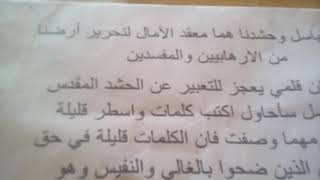 وحشدنا هما معقد الأمال لتحرير أرضنا
من الارهابيين والمفسدين
قلمي يعجز للتعبير عن الحشد المقدس
سأحاول اكتب كلمات واسطر قليلة
مهما وصفت فان الكلمات قليلة في حق
الذين ضحوا بالغالي والنفيس وهو